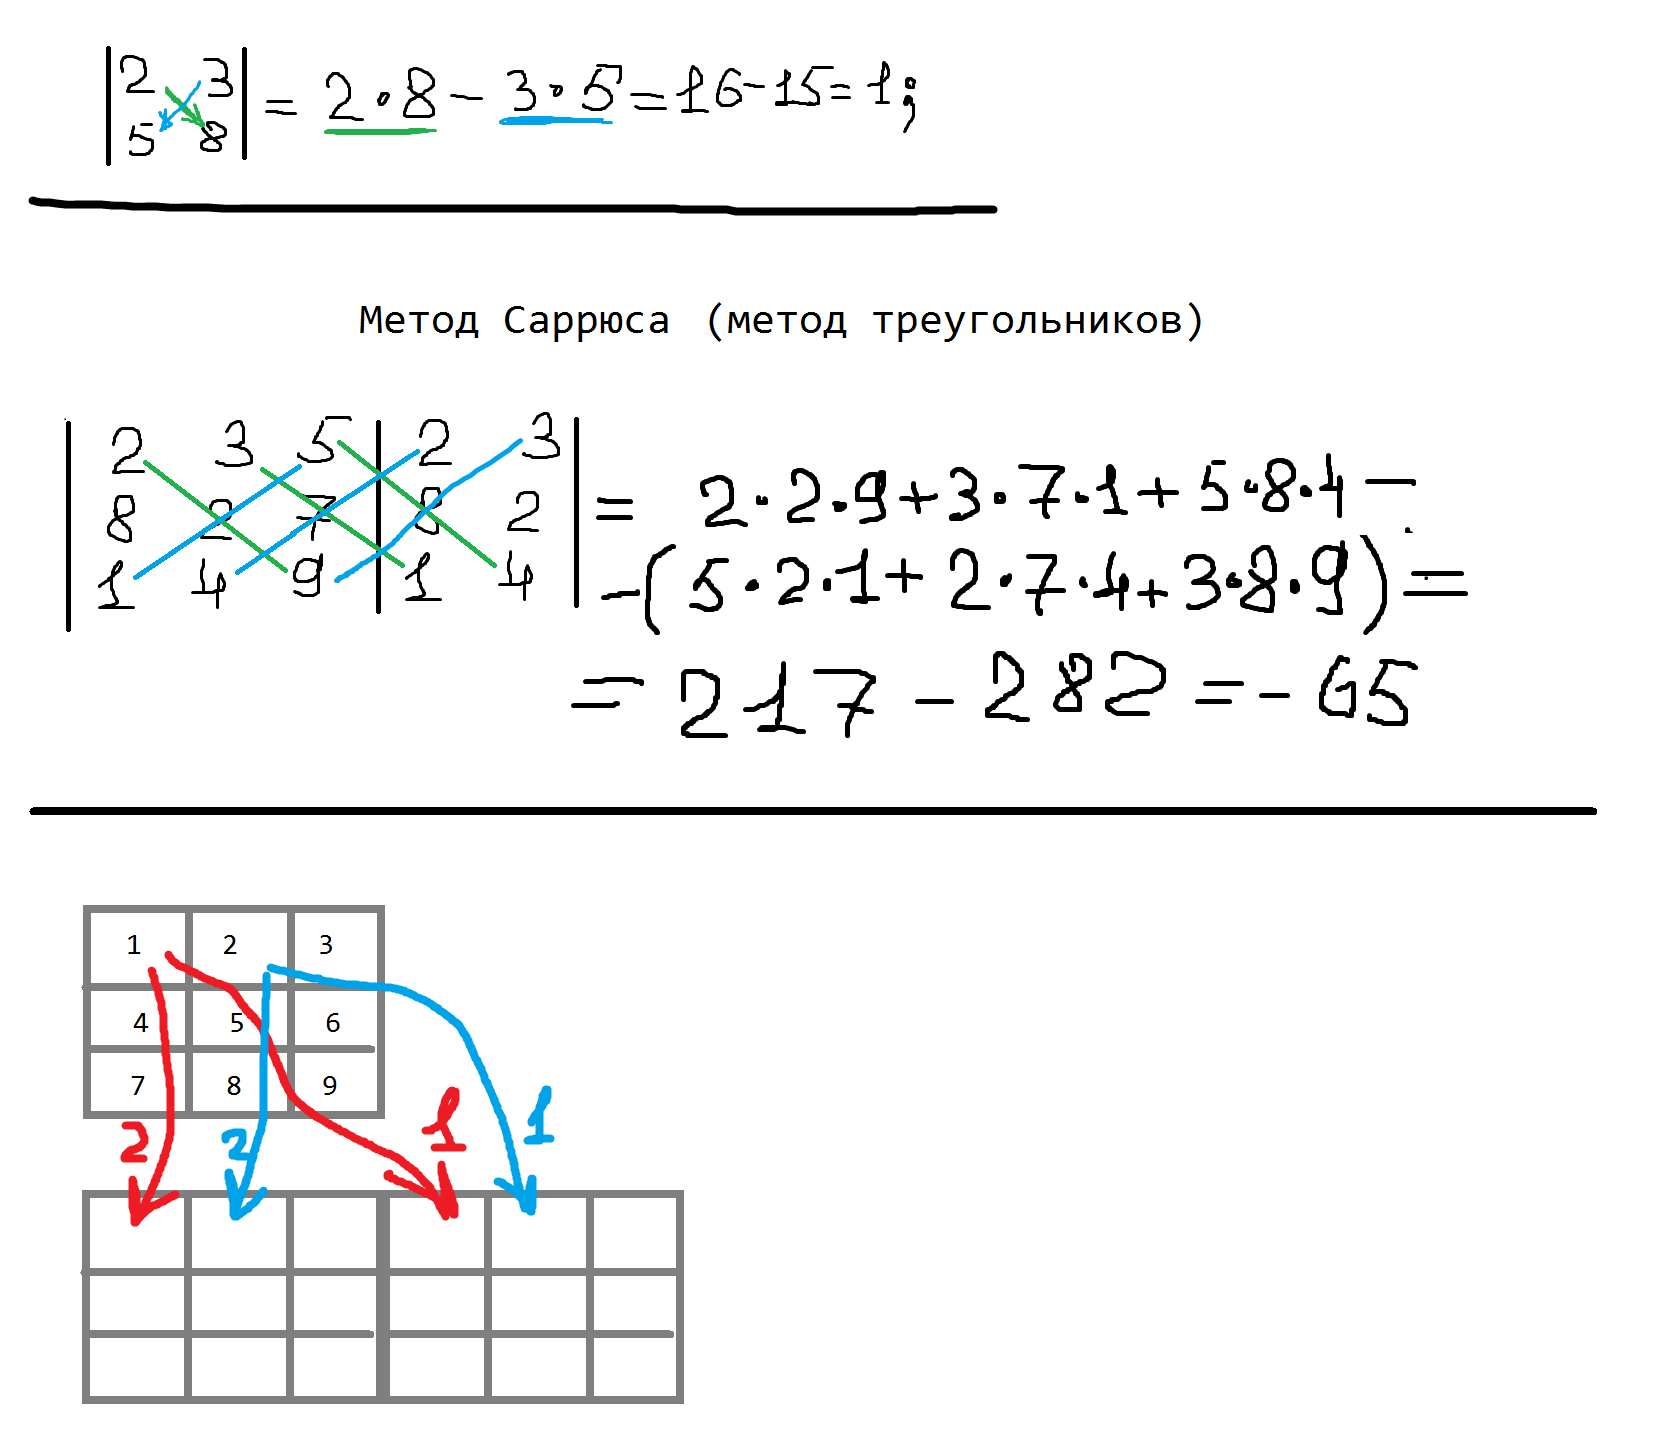 |2 3| = 2·8 - 3·5 = 16-15 = 1;
|5 8|
Метод Саррюса (метод треугольников)
|2 3 5|2 3|
|8 2 7|8 2| = 2·2·9+3·7·1+5·8·4 -
|1 4 9|1 4| -(5·2·1+2·7·4+3·8·9) =
= 217 - 282 = - 65
1 2 3
4 5 6
7 8 9
2 2 1 1